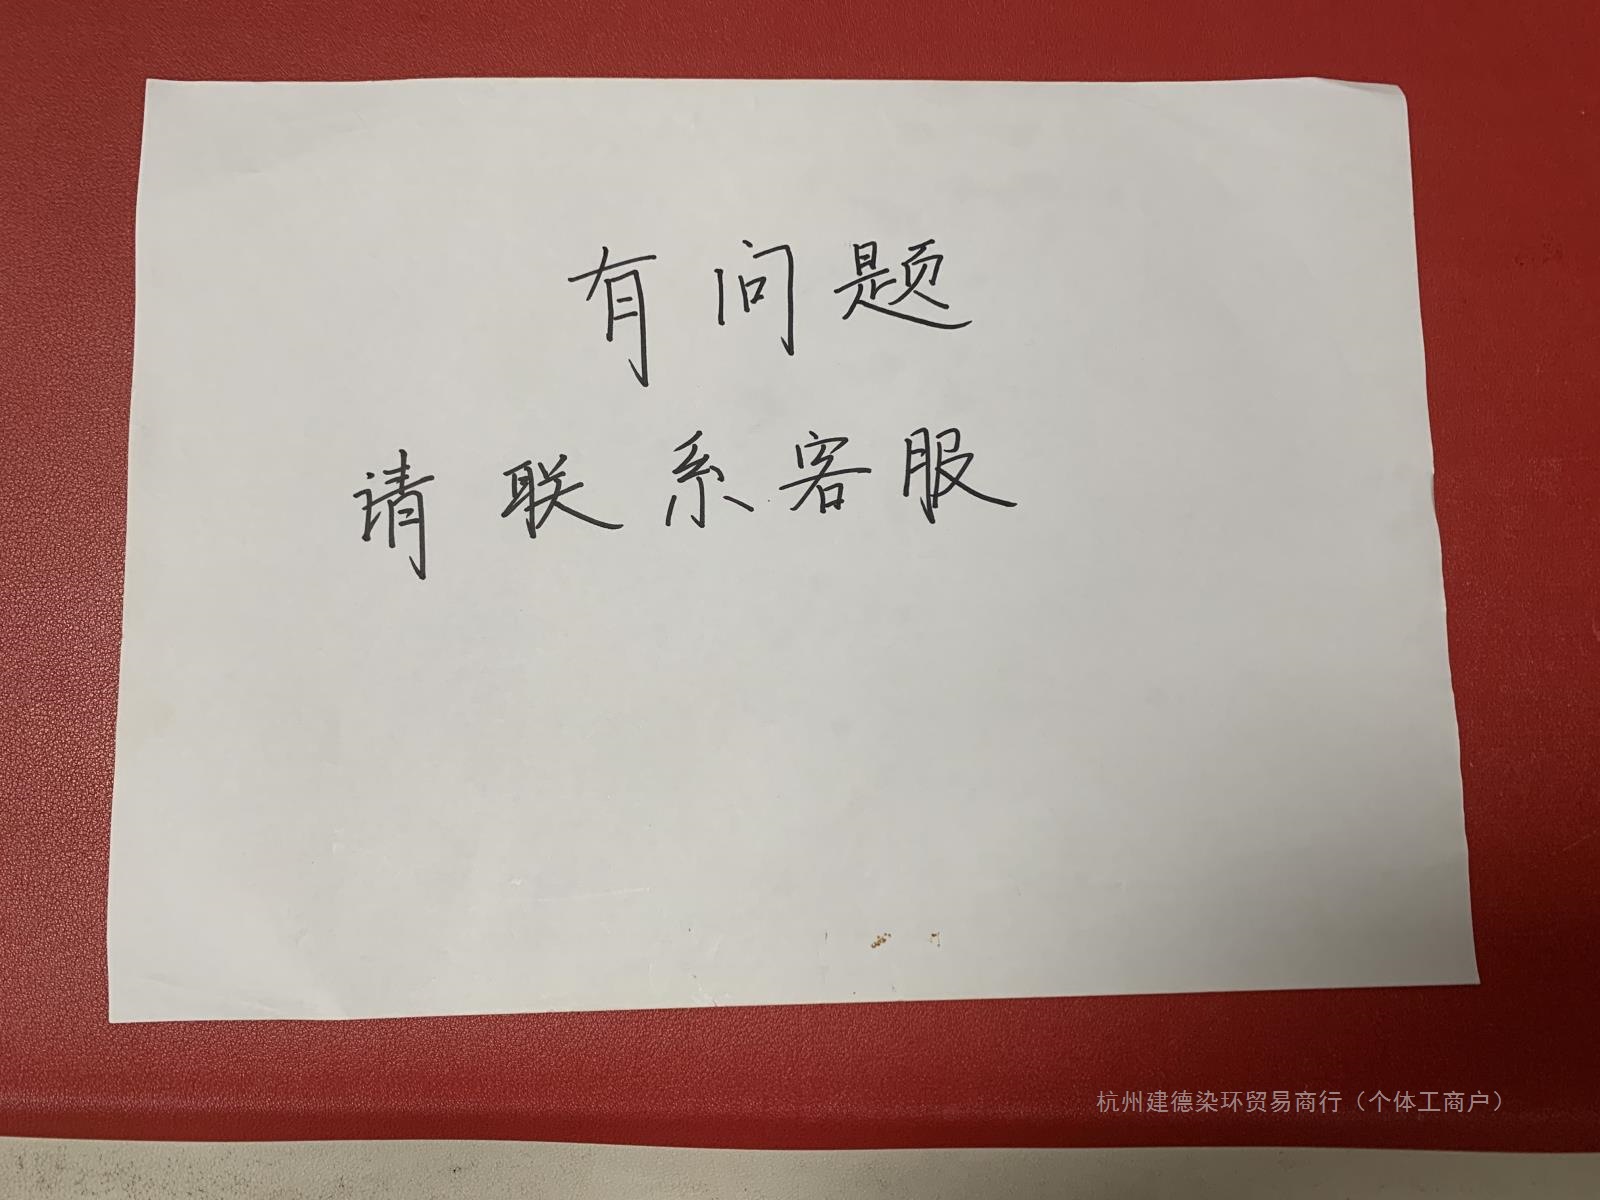 有问题
请联系客服
杭州建德染环贸易商行（个体工商户）